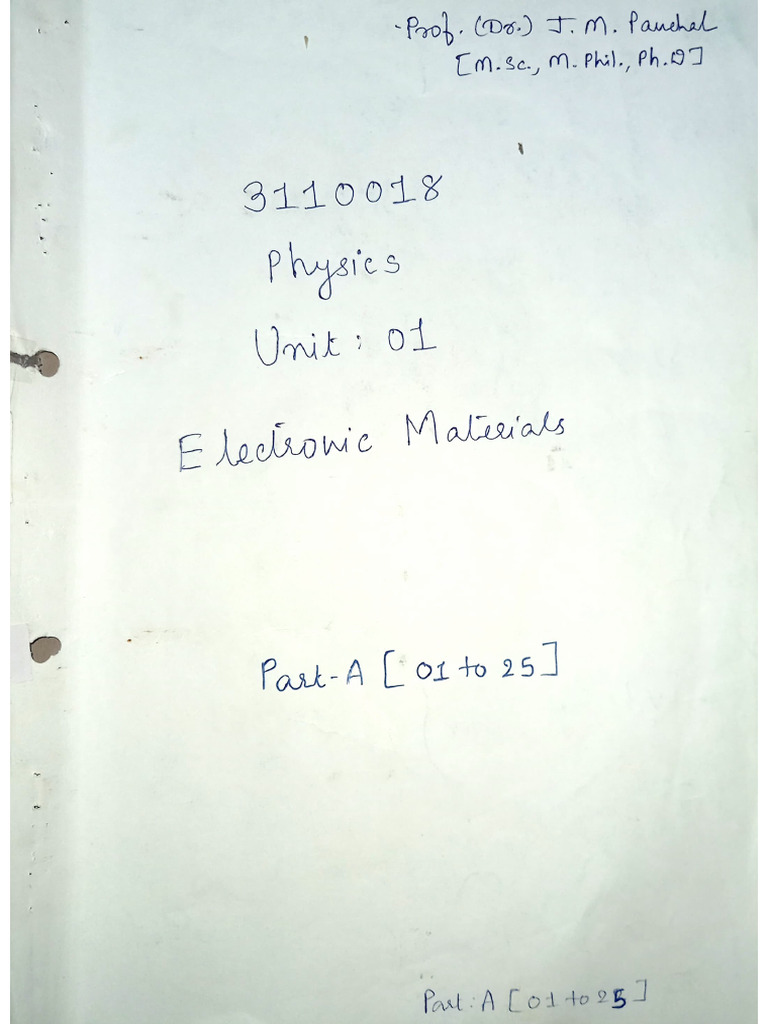 -Prof. (Dr.) J. M. Panchal
[M.Sc., M.Phil., Ph.D]
3110018
Physics
Unit: 01
Electronic Materials
Part-A [01 to 25]
Part: A [01 to 25]